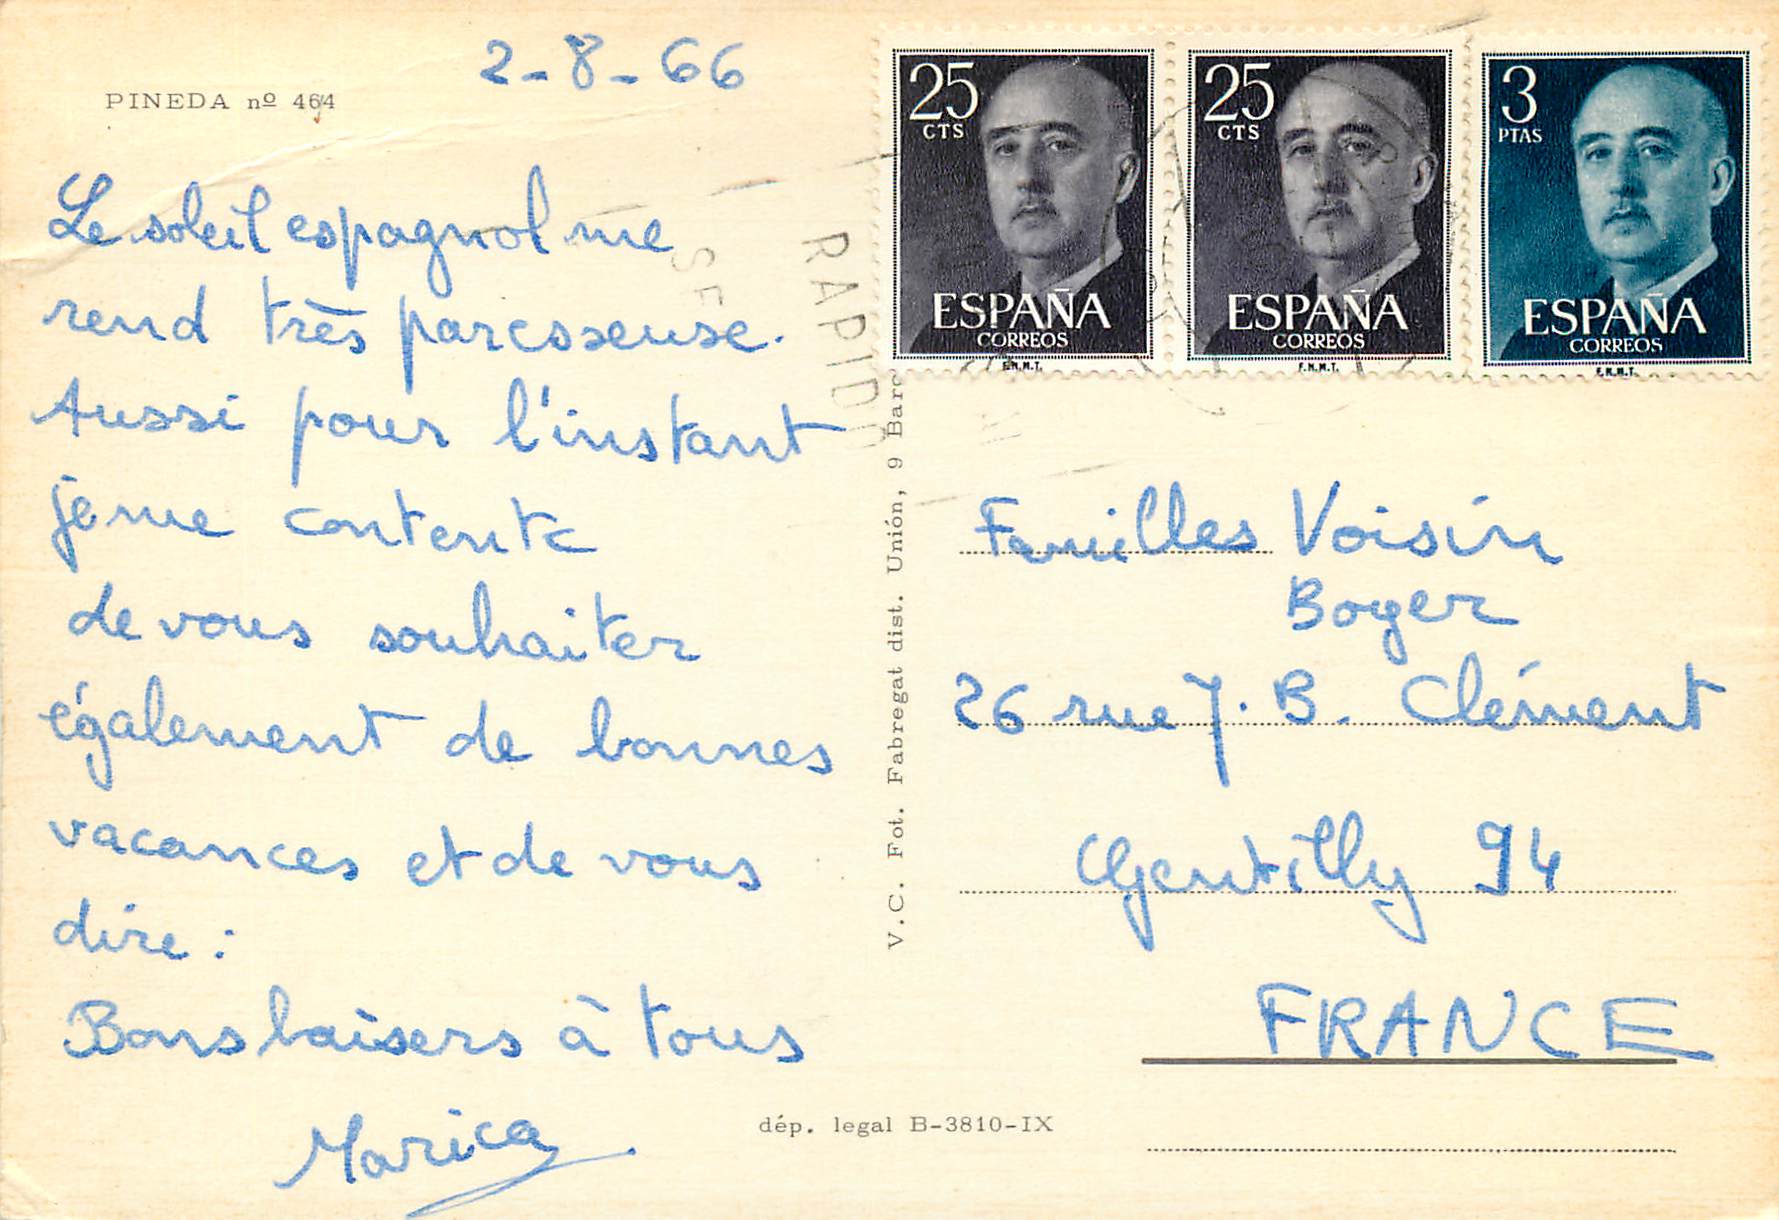 2-8-66
PINEDA nº 464
Le soleil espagnol me
rend très paresseuse.
Aussi pour l'instant
je me contente
de vous souhaiter
également de bonnes
vacances et de vous
dire :
Bons baisers à tous
25
CTS
ESPAÑA
CORREOS
F.N.M.T.
25
CTS
ESPAÑA
CORREOS
F.N.M.T.
3
PTAS
ESPAÑA
CORREOS
F.N.M.T.
RAPIDO
V.C. Fot. Fabregat dist. Unión, 9 Barc
Familles Voisin
Boyer
26 rue J. B. Clément
Gentilly 94
FRANCE
dép. legal B-3810-IX